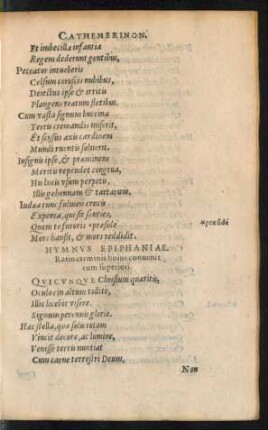 CATHEMERINON.
Et imbecilla infantia
Regem dederunt gentibus,
Peccator intueberis
Celsum coruscis nubibus,
Deiectus ipse & irritis
Plangens reatum fletibus.
Cum vasta signum buccina
Terris cremandis miserit,
Et scissus axis cardinem
Mundi ruentis soluerit.
Insignis ipse, & præminens
Meritis rependet congrua,
His lucis vsum perpetis,
Illis gehennam & tartarum.
Iudæa tunc fulmen crucis
Experta, qui sit senties,
Quem te furoris præsule
Mors hausit, & mox reddidit.
HYMNVS EPIPHANIAE.
Ratio carminis huius conuenit
cum superiori.
QVICVNQVE Christum quæritis,
Oculos in altum tollite,
Illic licebit visere
Signum perennis gloriæ.
Hæc stella, quæ solis rotam
Vincit decore, ac lumine,
Venisse terris nuntiat
Cum carne terrestri Deum,
Non